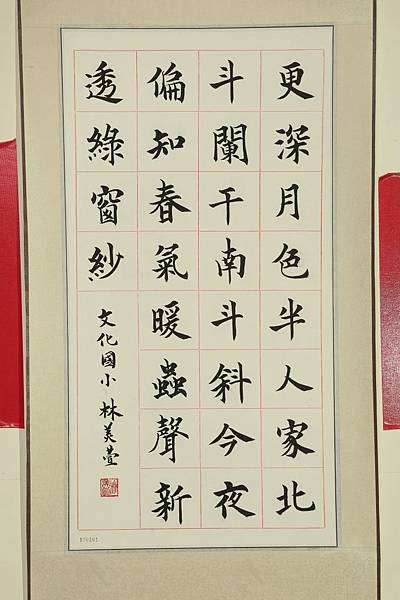 更深月色半人家北
斗闌干南斗斜今夜
偏知春氣暖蟲聲新
透綠窗紗
文化國小 林美萱